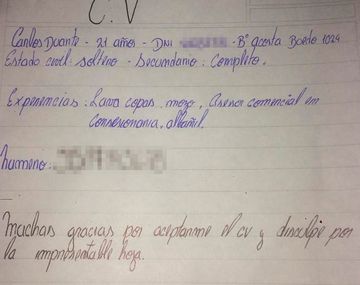 C.V
Carlos Duarte - 21 años - DNI - B° acosta Boedo 1024
Estado civil: soltero - Secundario: Completo.
Experiencias: Lava copas, mozo, Asesor comercial en
Consesionaria, albañil.
humero:
Muchas gracias por aceptarme el cv y disculpe por
la impresentable hoja.